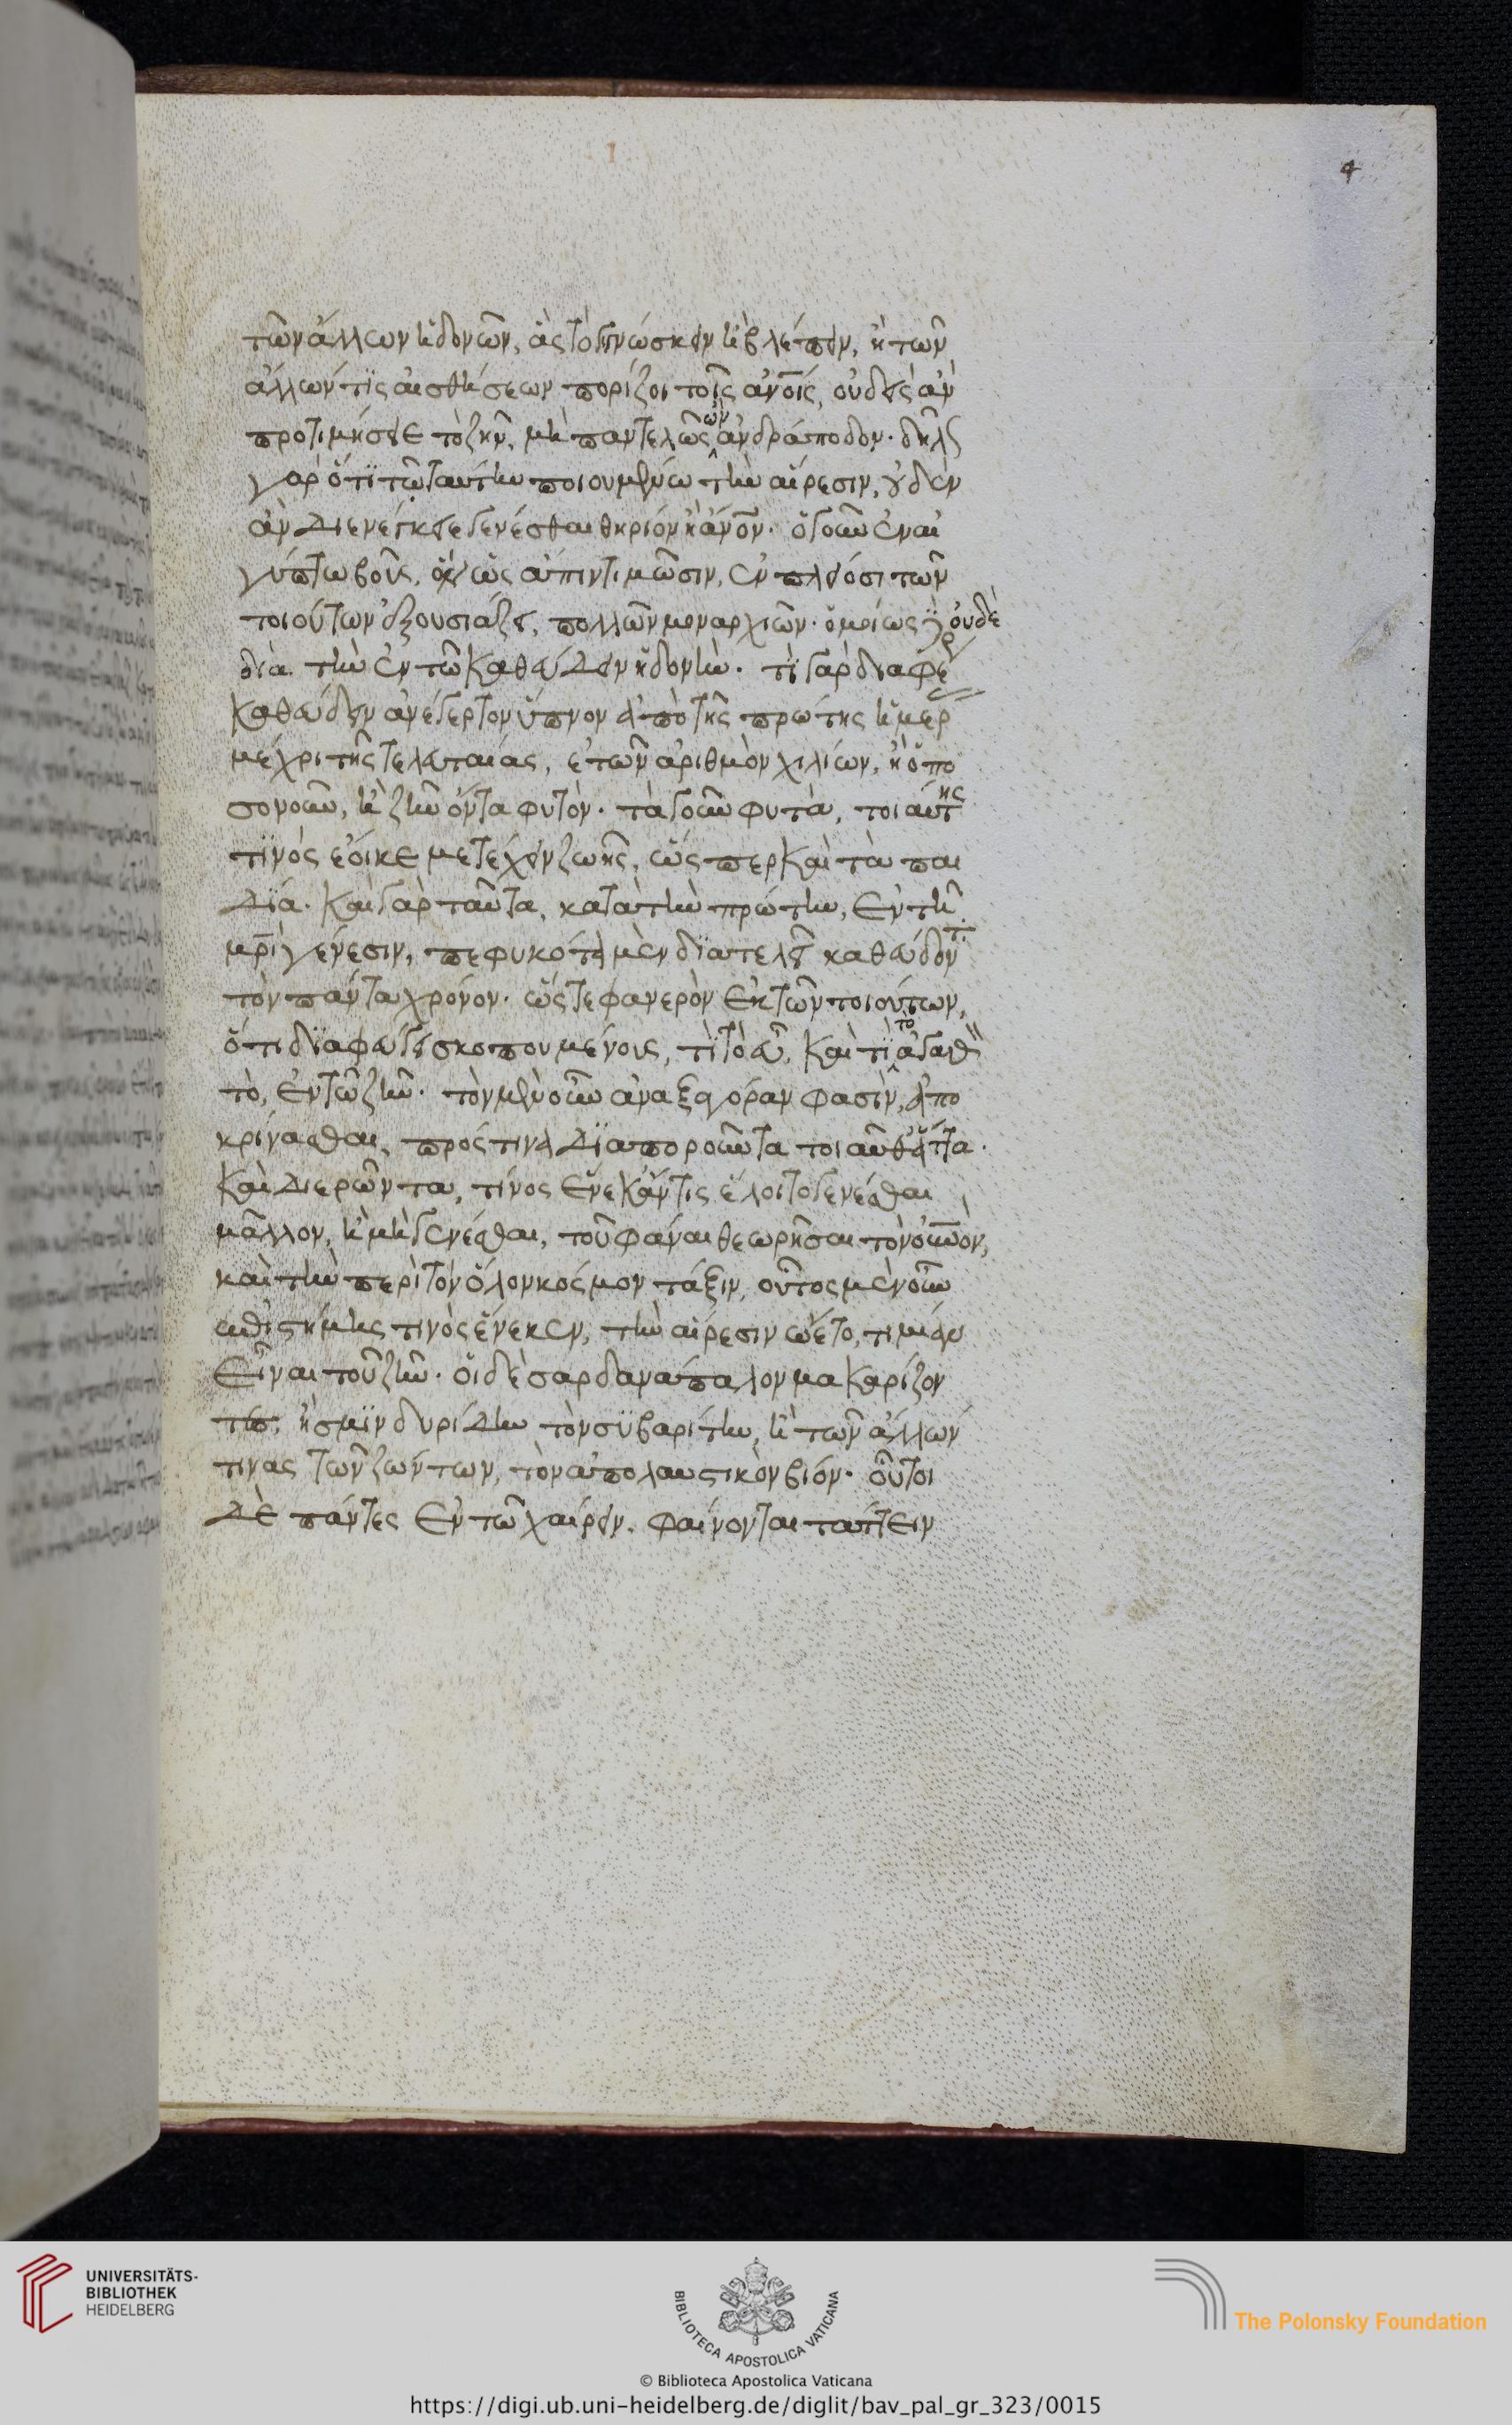 τῶν ἄλλων ἡδονῶν, ἃς τὸ γινώσκειν ἢ βλέπειν, ἢ τῶν
ἄλλων τὶς αἰσθήσεων πορίζοι τοῖς ἀνοις, οὐδεὶς ἀν
προτιμήσειε τὸ ζῆν, μὴ παντελῶς ὢν ἀνδράποδον. δῆλ
γὰρ ὅτι τῶ ταύτην ποιουμένω τὴν αἵρεσιν, οὐδὲν
ἂν διενέγκειε γενέσθαι θηρίον ἢ ἀνον. ὁ γοῦν ἐν αἰ
γύπτω βοῦς, ὃν ὡς ἄπιν τιμῶσιν, ἐν πλείοσι τῶν
τοιούτων ἐξουσιάζει, πολλῶν μοναρχιῶν. ὁμοίως οὐδὲ
διὰ τὴν ἐν τῶ καθεύδειν ἡδονὴν. τί γὰρ διαφέρ
καθεύδειν ἀνέγερτον ὕπνον ἀπὸ τῆς πρώτης ἡμερ
μέχρι τῆς τελευταίας, ἐτῶν ἀριθμὸν χιλίων, ἢ ὁπο
σονοῦν, ἢ ζῆν ὄντα φυτόν. τὰ γοῦν φυτὰ, τοιαύτης
τινὸς ἔοικε μετέχειν ζωῆς, ὥσπερ καὶ τὰ παι
δία. καὶ γὰρ ταῦτα, κατὰ τὴν πρώτην, ἐν τῆ
μρὶ γένεσιν, πεφυκότα μὲν διατελεῖ καθεύδοντ
τὸν πάντα χρόνον. ὥστε φανερὸν ἐκ τῶν τοιούτων,
ὅτι διαφεύγει σκοπουμένοις, τί τὸ εὖ, καὶ τί τὸ ἀγαθὸν
τὸ, ἐν τῶ ζῆν. τὸν μὲν οὖν ἀναξαγόραν φασὶν, ἀπο
κρίνασθαι, πρός τινα διαποροῦντα τοιαῦθ' ἄττα.
καὶ διερωτῶντα, τίνος ἕνεκ' ἄν τις ἕλοιτο γενέσθαι
μᾶλλον, ἢ μὴ γενέσθαι, τοῦ φάναι θεωρῆσαι τὸν οὐνὸν,
καὶ τὴν περὶ τὸν ὅλον κόσμον τάξιν, οὗτος μὲν οὖν
ἐπιστήμης τινὸς ἕνεκεν, τὴν αἵρεσιν ὤετο, τιμίαν
εἶναι τοῦ ζῆν. οἱ δὲ σαρδανάπαλον μακαρίζον
τες, ἢ σμινδυρίδην τὸν συβαρίτην, ἢ τῶν ἄλλων
τινὰς τῶν ζώντων, τὸν ἀπολαυστικὸν βίον. οὗτοι
δὲ πάντες ἐν τῶ χαίρειν, φαίνονται τάττειν
UNIVERSITÄTS-
BIBLIOTHEK
HEIDELBERG
BIBLIOTECA APOSTOLICA VATICANA
The Polonsky Foundation
© Biblioteca Apostolica Vaticana
https://digi.ub.uni-heidelberg.de/diglit/bav_pal_gr_323/0015